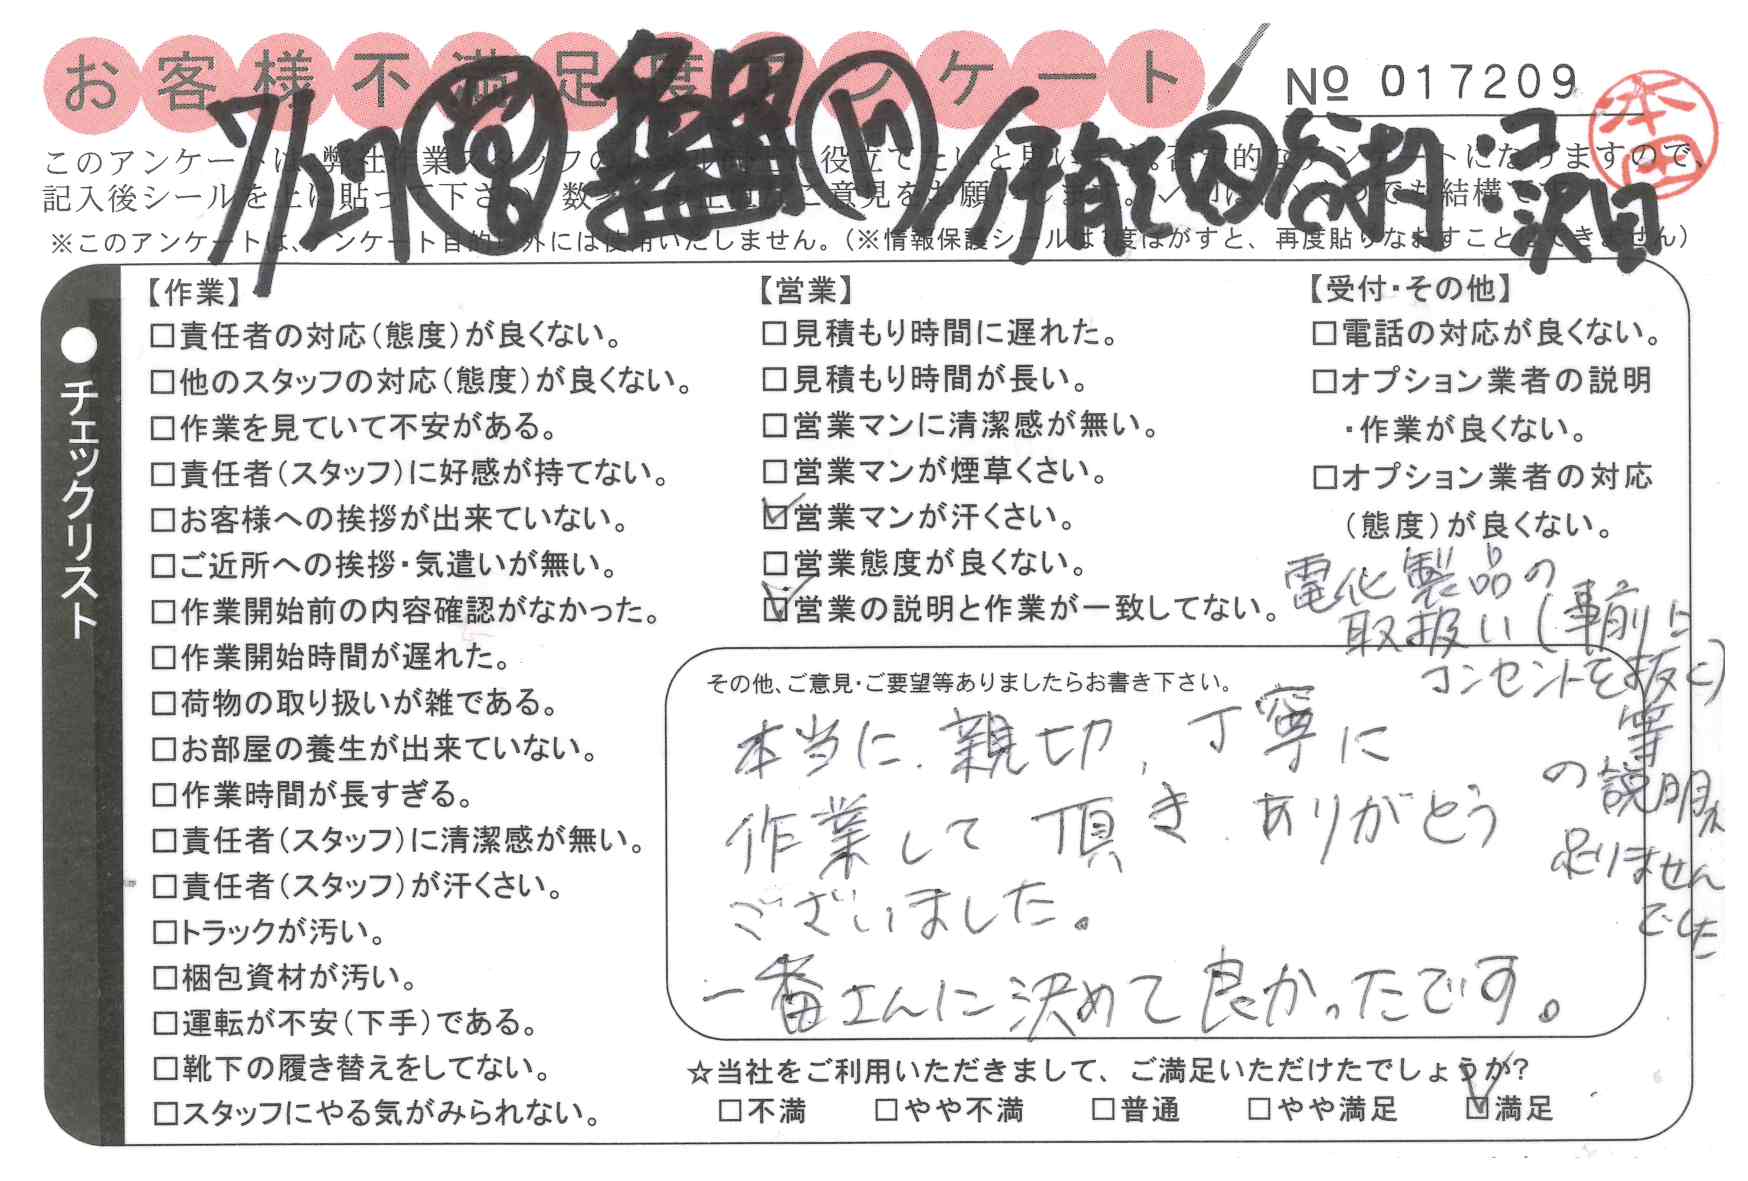 お客様不満足度アンケート
No 017209
本田
7/27
このアンケートは、弊社作業スタッフの
役立てたいと思い
アンケートになりますので、
記入後シールを上に貼って下さい。
ご意見をお願いします。
でも結構です
※このアンケートは、アンケート目的以外には使用いたしません。(※情報保護シールは1度はがすと、再度貼りなおすことはできません)
●チェックリスト
【作業】
□責任者の対応(態度)が良くない。
□他のスタッフの対応(態度)が良くない。
□作業を見ていて不安がある。
□責任者(スタッフ)に好感が持てない。
□お客様への挨拶が出来ていない。
□ご近所への挨拶・気遣いが無い。
□作業開始前の内容確認がなかった。
□作業開始時間が遅れた。
□荷物の取り扱いが雑である。
□お部屋の養生が出来ていない。
□作業時間が長すぎる。
□責任者(スタッフ)に清潔感が無い。
□責任者(スタッフ)が汗くさい。
□トラックが汚い。
□梱包資材が汚い。
□運転が不安(下手)である。
□靴下の履き替えをしてない。
□スタッフにやる気がみられない。
【営業】
□見積もり時間に遅れた。
□見積もり時間が長い。
□営業マンに清潔感が無い。
□営業マンが煙草くさい。
☑営業マンが汗くさい。
□営業態度が良くない。
☑営業の説明と作業が一致してない。
【受付・その他】
□電話の対応が良くない。
□オプション業者の説明
・作業が良くない。
□オプション業者の対応
(態度)が良くない。
電化製品の
取扱い(事前に
コンセントを抜く)
等
の説明が
足りません
でした
その他、ご意見・ご要望等ありましたらお書き下さい。
本当に、親切、丁寧に
作業して頂き、ありがとう
ございました。
一番さんに決めて良かったです。
☆当社をご利用いただきまして、ご満足いただけたでしょうか?
□不満 □やや不満 □普通 □やや満足 ☑満足